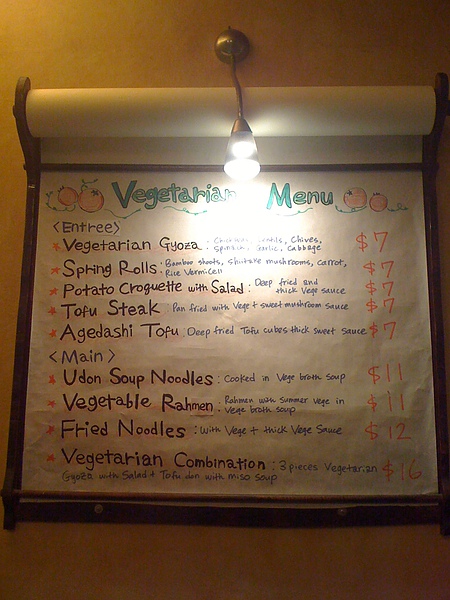 Vegetarian Menu
<Entree>
Vegetarian Gyoza : Chickpeas, Lentils, Chives, $7
Spinach, Garlic, Cabbage
Spring Rolls : Bamboo shoots, shiitake mushrooms, carrot, $7
Rice Vermicelli
Potato Croquette with Salad : Deep fried and $7
thick Vege sauce
Tofu Steak : Pan fried with Vege + sweet mushroom sauce $7
Agedashi Tofu : Deep fried Tofu cubes thick sweet sauce $7
<Main>
Udon Soup Noodles : Cooked in Vege broth soup $11
Vegetable Rahmen : Rahmen with summer vege in $11
Vege broth soup
Fried Noodles : With Vege + thick Vege Sauce $12
Vegetarian Combination : 3 pieces Vegetarian $16
Gyoza with Salad + Tofu don with miso soup